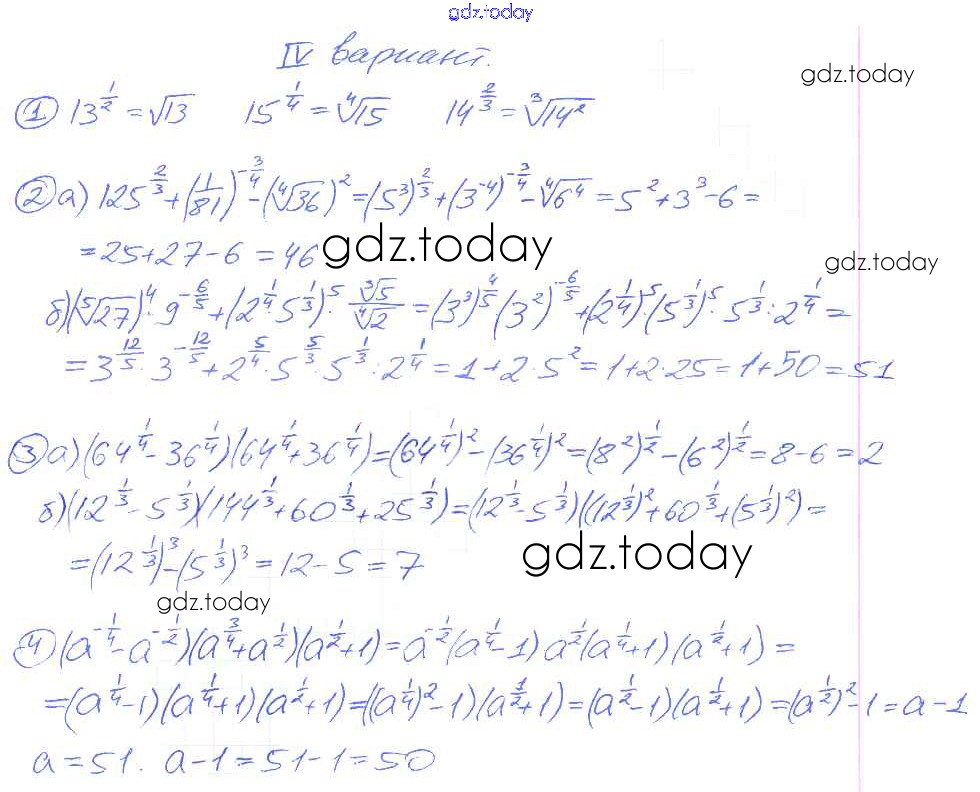 gdz.today
IV вариант.
gdz.today
① 13^(1/2) = √13   15^(1/4) = ⁴√15   14^(2/3) = ³√(14²)
② а) 125^(2/3) + (1/81)^(-3/4) - (⁴√36)² = (5³)^(2/3) + (3^(-4))^(-3/4) - ⁴√(6⁴) = 5² + 3³ - 6 =
= 25 + 27 - 6 = 46
gdz.today
gdz.today
б) (⁵√27)⁴ · 9^(-6/5) + (2^(1/4) · 5^(1/3))⁵ · ³√5/⁴√2 = (3³)^(4/5) (3²)^(-6/5) + (2^(1/4))⁵ · (5^(1/3))⁵ · 5^(1/3) : 2^(1/4) =
= 3^(12/5) · 3^(-12/5) + 2^(5/4) · 5^(5/3) · 5^(1/3) : 2^(1/4) = 1 + 2 · 5² = 1 + 2 · 25 = 1 + 50 = 51
③ а) (64^(1/4) - 36^(1/4)) (64^(1/4) + 36^(1/4)) = (64^(1/4))² - (36^(1/4))² = (8²)^(1/2) - (6²)^(1/2) = 8 - 6 = 2
б) (12^(1/3) - 5^(1/3)) (144^(1/3) + 60^(1/3) + 25^(1/3)) = (12^(1/3) - 5^(1/3)) ((12^(1/3))² + 60^(1/3) + (5^(1/3))²) =
= (12^(1/3))³ - (5^(1/3))³ = 12 - 5 = 7
gdz.today
gdz.today
④ (a^(-1/4) - a^(-1/2)) (a^(3/4) + a^(1/2)) (a^(1/2) + 1) = a^(-1/2) (a^(1/4) - 1) a^(1/2) (a^(1/4) + 1) (a^(1/2) + 1) =
= (a^(1/4) - 1) (a^(1/4) + 1) (a^(1/2) + 1) = ((a^(1/4))² - 1) (a^(1/2) + 1) = (a^(1/2) - 1) (a^(1/2) + 1) = (a^(1/2))² - 1 = a - 1
a = 51. a - 1 = 51 - 1 = 50